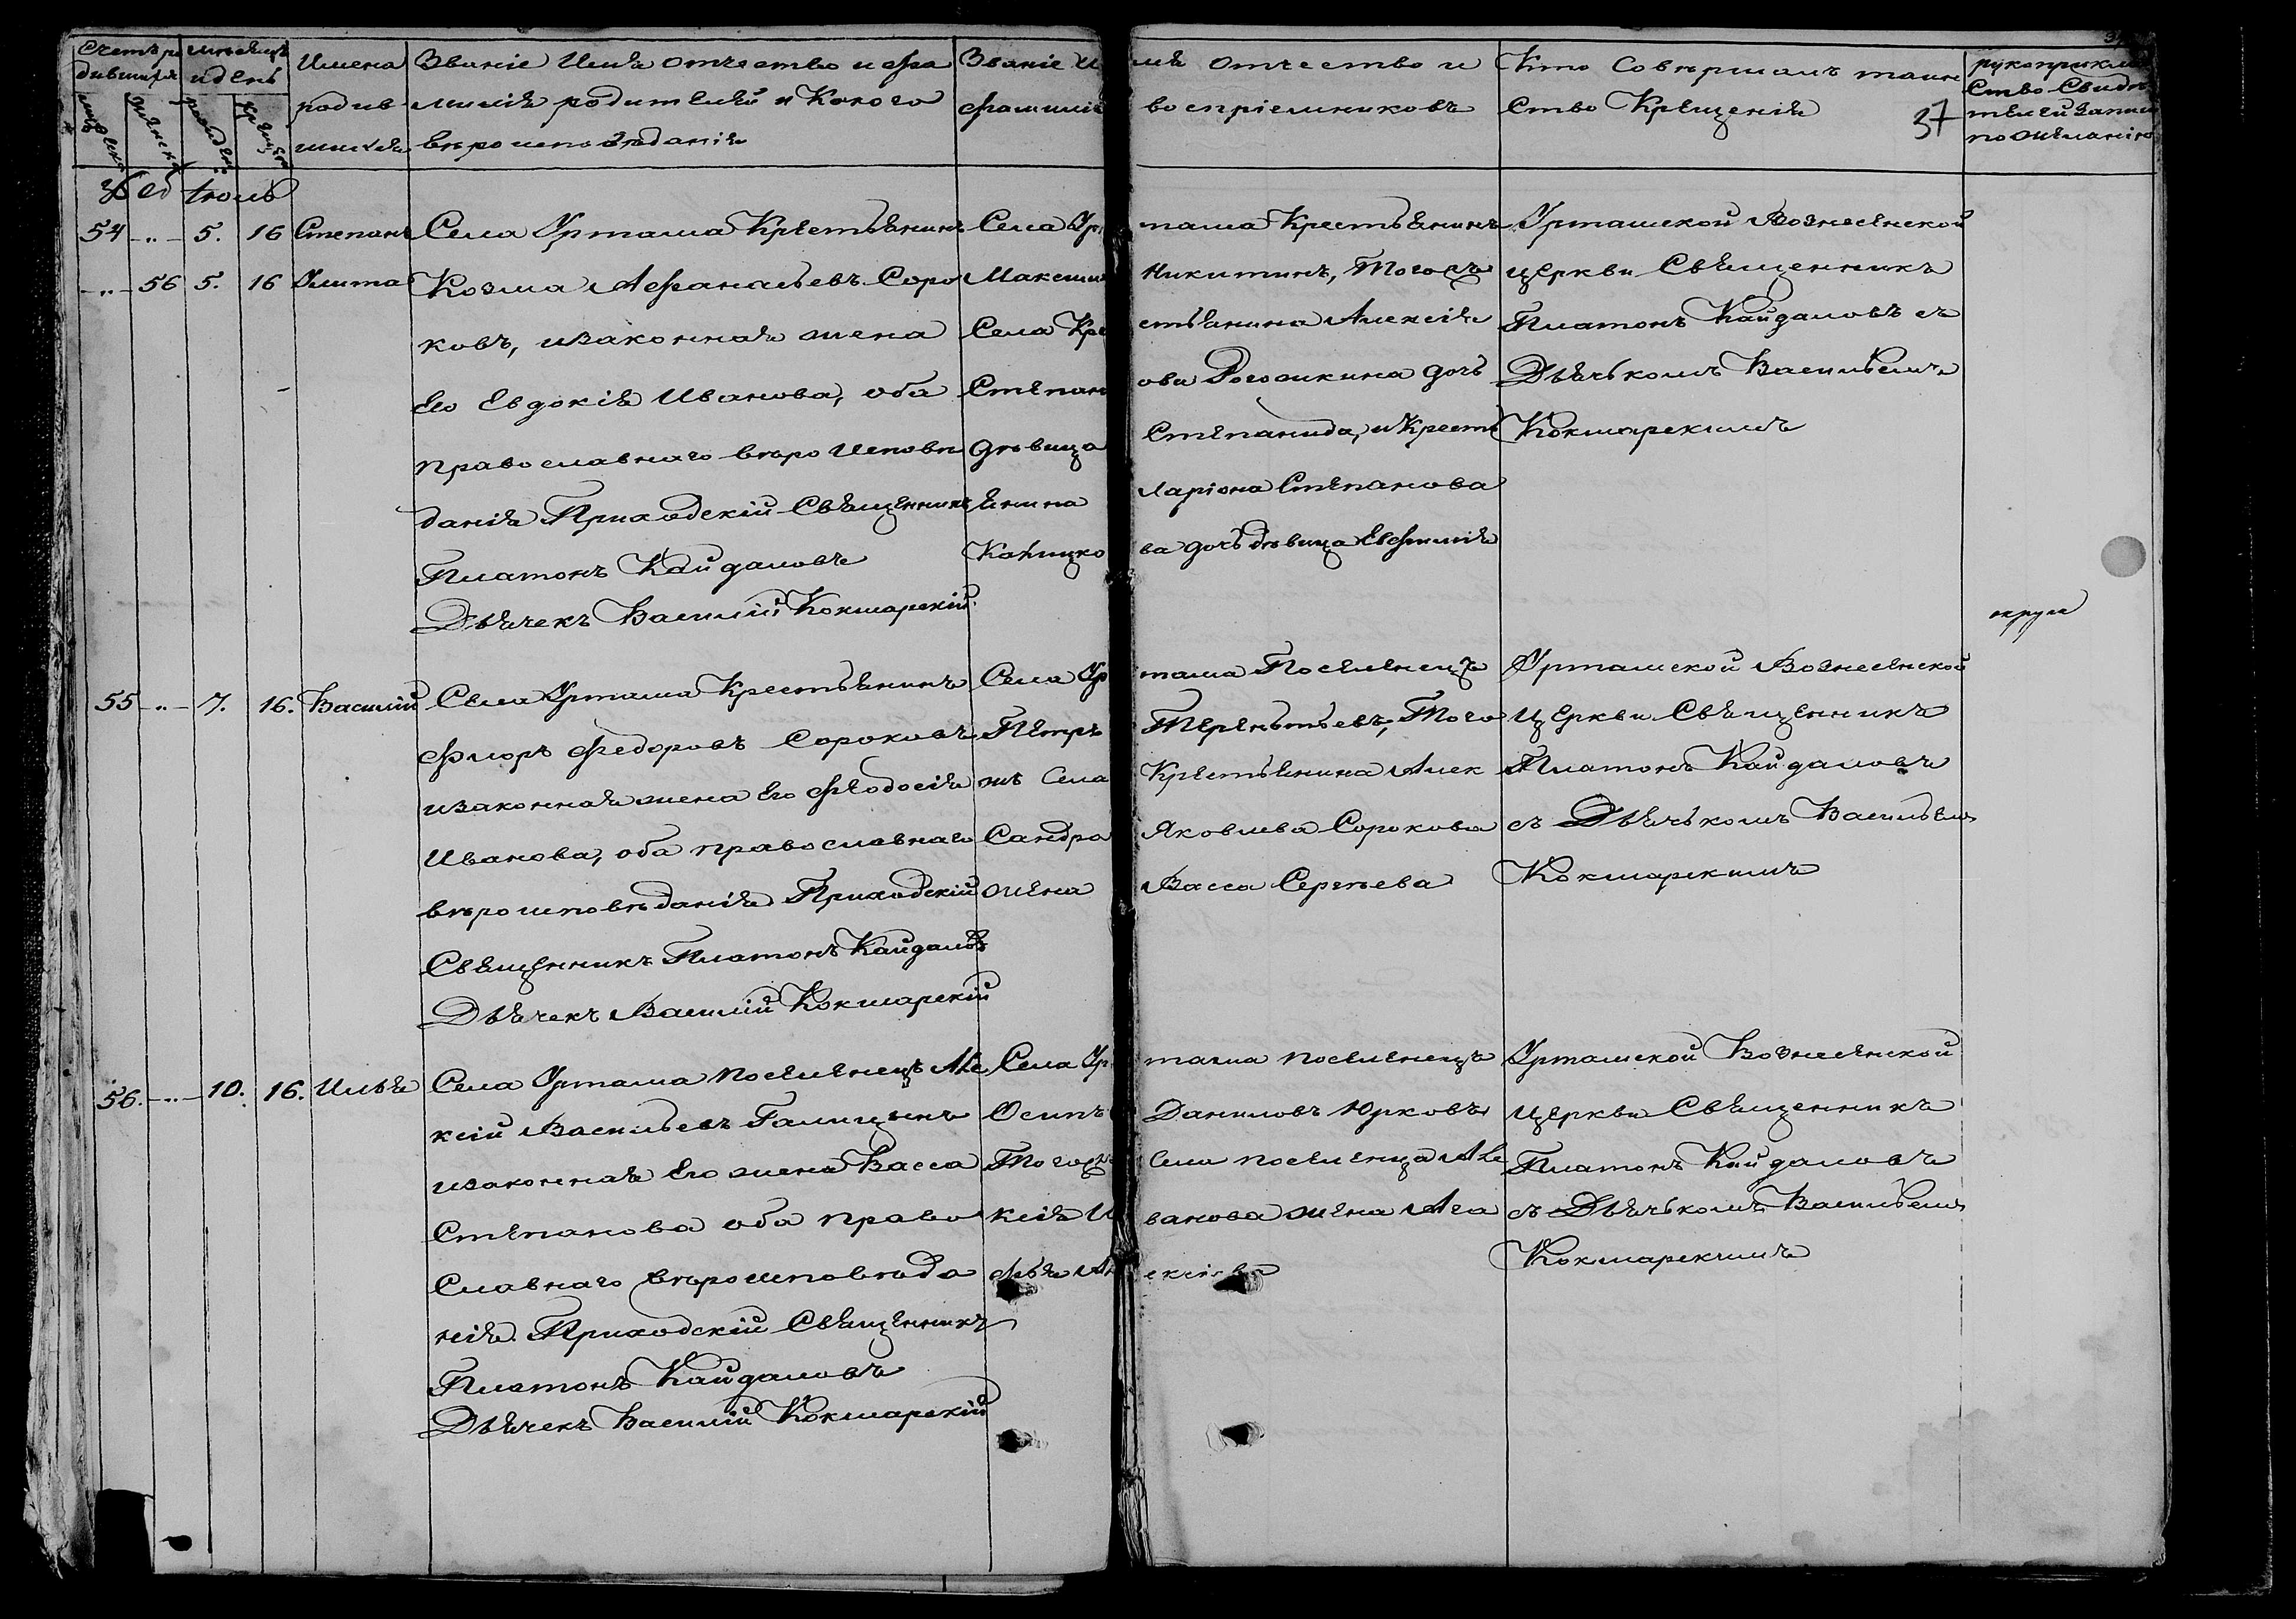 Счетъ ро
дившихся
мѣсяцъ
и день
Имена
родив
шихся
Званіе Имя отчество и фа
милія родителей и Какого
вѣроисповѣданія
Званіе И
фамилія
мя отчество и
воспріемниковъ
Кто Совершалъ таин
ство Крещенія
37
рукоприклад
Ство Свидѣ
телей записи
по желанію
мужеска
женска
рожден:
Крещен
Іюль
54 -..- 5. 16 Степанъ Села Урташа Крестьянинъ
-..- 56 5. 16 Улита Козма Афанасьевъ Соро
ковъ, изаконная жена
Его Евдокія Иванова, оба
православнаго вѣро Исповѣ
данія Приходскій Священникъ
Платонъ Кайдаловъ
Дьячекъ Василій Кокшарскій
Села Ур
Максим
Села Кре
Степан
дѣвица
янина
таша Крестьянинъ
Никитинъ, Тогожъ
стьянина Алексія
ова Рогожкина дочь
Степанида, и Кресть
Ларіона Степанова
ва дочь дѣвица Евфимія
Урташской Вознесенской
церкви Священникъ
Платонъ Кайдаловъ съ
Дьячькомъ Васильемъ
Кокшарскимъ
округа
55 -..- 7. 16. Василій Села Урташа Крестьянинъ
Флоръ Федоровъ Сороковъ
изаконная жена Его Феодосія
Иванова, оба православнаго
вѣроисповѣданія Приходскій
Священникъ Платонъ Кайдаловъ
Дьячекъ Василій Кокшарскій
Села Ур
Петръ
жъ Села
Сандра
жена
таша Поселенецъ
Терентьевъ, Того
Крестьянина Алек
Яковлева Сорокова
Васса Сергѣева
Урташской Вознесенской
Церкви Священникъ
Платонъ Кайдаловъ
съ Дьячькомъ Васильемъ
Кокшарскимъ
56. -..- 10. 16. Илья Села Урташа поселенецъ Але
ксій Васильевъ Галицынъ
изаконная Его жена Васса
Степанова оба право
Славнаго вѣроисповѣда
нія. Приходскій Священникъ
Платонъ Кайдаловъ
Дьячекъ Василій Кокшарскій
Села Ур
Осипъ
Тогожъ
ксія И
фья Ал
таша поселенецъ
Даниловъ Юрковъ
Села поселенца Але
ванова жена Ага
ексіева
Урташской Вознесенской
Церкви Священникъ
Платонъ Кайдаловъ
съ Дьячькомъ Васильемъ
Кокшарскимъ